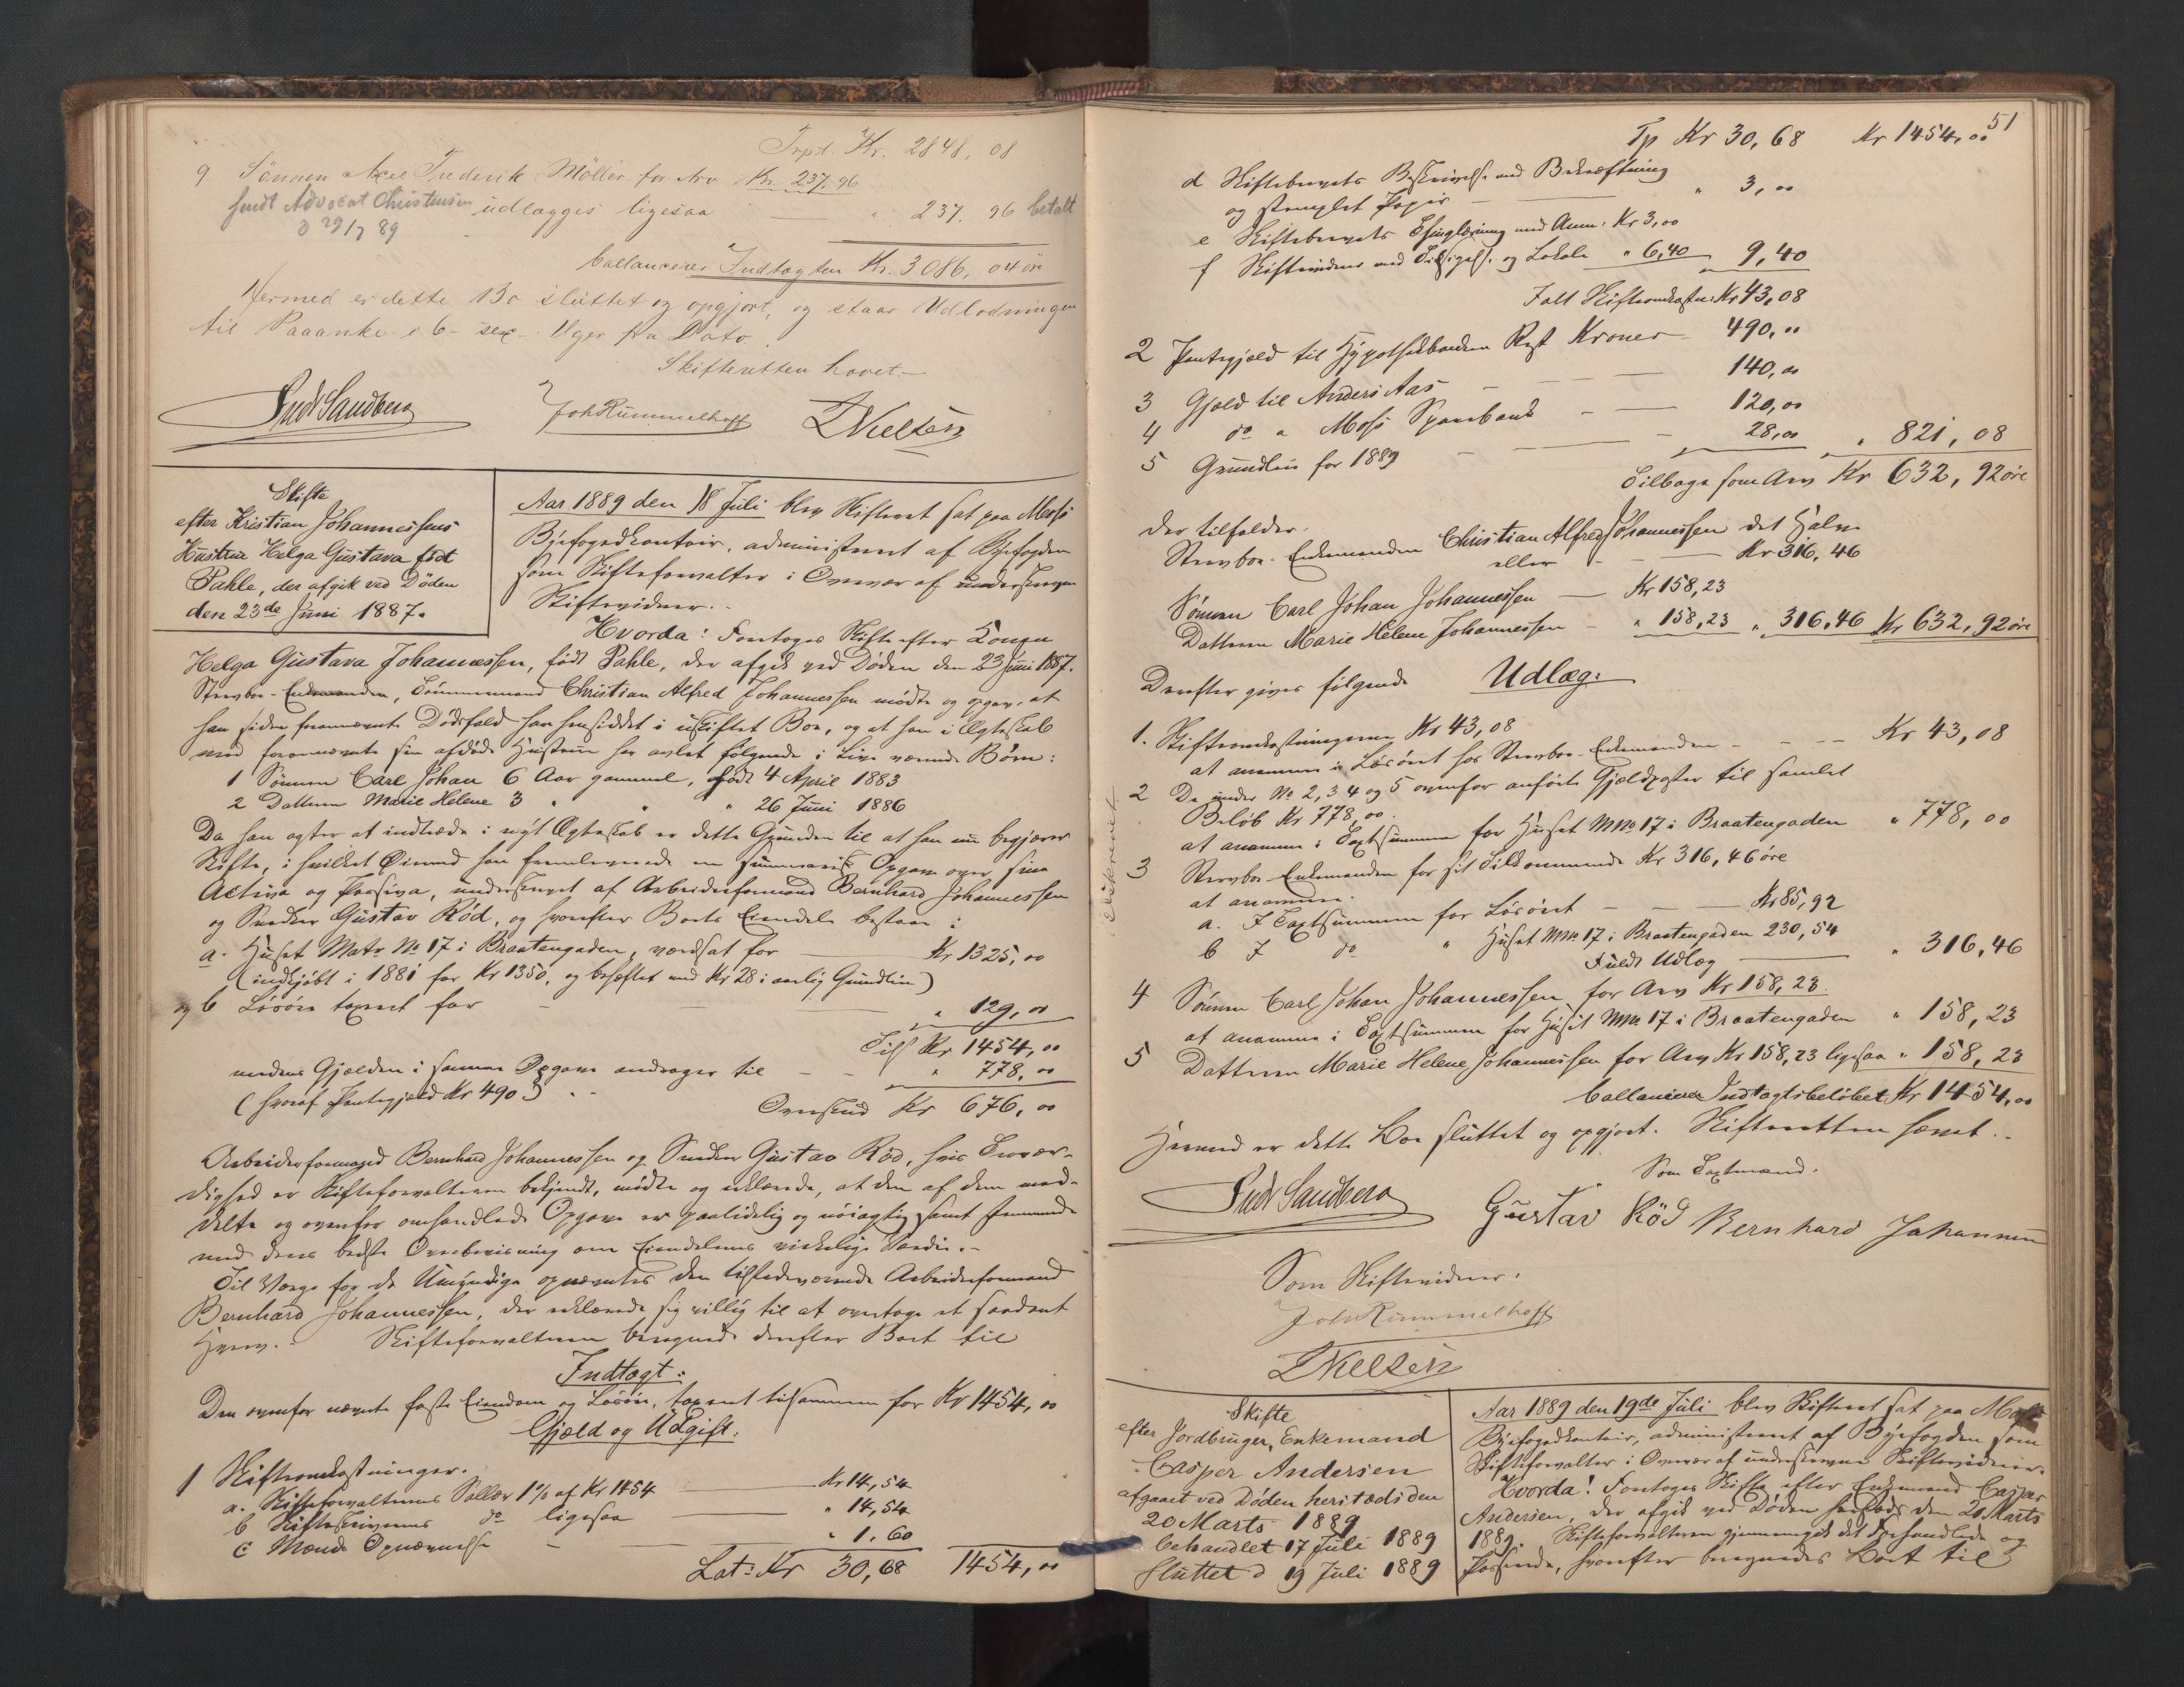 Trpt. Kr. 2848, 08
9 Sønnen Axel Frederik Møller for Arv Kr. 237,96
sendt Advocat Christensen udlægges ligesaa — „ 237, 96 betalt
d 29/7 89
ballancerer Indtægten Kr. 3086, 04 øre
Hermed er dette Bo sluttet og opgjort, og staar Udlodningen
til Paaanke i 6 - sex - Uger fra Dato.
Skifteretten hævet.—
Fredr Sandberg Joh Rummelhoff L Nielsen
Skifte
efter Kristian Johannessens
Hustru Helga Gustava født
Pahle, der afgik ved Døden
den 23de Juni 1887.
Aar 1889 den 18 Juli blev Skifteret sat paa Moss
Byefogedkontoir, administreret af Byefogden
som Skifteforvalter i Overvær af underskrevne
Skiftevidner.
Hvorda: Foretoges Skifte efter Konen
Helga Gustava Johannessen, født Pahle, der afgik ved Døden den 23 Juni 1887.
Stervbo-Enkemanden, Tømmermand Christian Alfred Johannessen mødte og opgav, at
han siden forannævnte Dødsfald har hensiddet i uskiftet Boe, og at han i Ægteskab
med forannævnte sin afdøde Hustru har avlet følgende i Live værende Børn:
1 Sønnen Carl Johan 6 Aar gammel, født 4 April 1883
2 Datteren Marie Helene 3 „ „ „ 26 Juni 1886
Da han agter at indtræde i nyt Ægteskab er dette Grunden til at han nu begjærer
Skifte, i hvilket Øiemed han fremleverede en summarisk Opgave over sine
Activa og Passiva, underskrevet af Arbeiderformand Bernhard Johannessen
og Snedker Gustav Rød, og hvorefter Boets Eiendele bestaar i
a. Huset Matr No 17 i Braatengaden, værdsat for — Kr 1325, 00
(indkjøbt i 1881 for Kr 1350, og beheftet med Kr 28 i aarlig Grundleie)
og b Løsøre taxeret for — „ 129, 00
Tils Kr 1454, 00
medens Gjælden i samme Opgave andrager til — „ 778, 00
(hvoraf Pantegjæld Kr 490)
Overskud Kr 676, 00
Arbeiderformand Bernhard Johannessen og Snedker Gustav Rød, hvis Troværdighed
er Skifteforvalteren bekjendt, mødte og erklærede, at den af dem meddelte
og ovenfor omhandlede Opgave er paalidelig og nøiagtig samt stemmende
med deres bedste Overbevisning om Eiendelenes virkelige Værdi.—
Til Værge for de Umyndige opnævntes den tilstedeværende Arbeiderformand
Bernhard Johannessen, der erklærede sig villig til at overtage et saadant
Hverv.— Skifteforvalteren beregnede derefter Boet til
Indtægt:
Den ovenfor nævnte faste Eiendom og Løsøre, taxeret tilsammen for Kr 1454, 00
Gjæld og Udgift:
1 Skifteomkostninger.
a. Skifteforvalterens Sallær 1% af Kr 1454 — Kr 14, 54
b Skifteskriverens do ligesaa — „ 14, 54
c Mænds Opnævnelse — „ 1. 60
Lat: Kr 30, 68 1454, 00
51
Tp Kr 30, 68 Kr 1454, 00
d Skiftebrevets Beskrivelse med Bekræftning
og stemplet Papir — „ 3, 00
e Skiftebrevets Thinglæsning med Ann: Kr 3,00
f Skiftevidner med Tilsigelse og Lokale „ 6,40 „ 9, 40
Ialt Skifteomkostn: Kr 43, 08
2 Pantegjæld til Hypothekbanken Rest Kroner — 490, 00
3 Gjæld til Anders Aas — 140, 00
4 do „ Moss Sparebank — 120, 00
5 Grundleie for 1889 — 28, 00 „ 821, 08
Tilbage som Arv Kr 632, 92 øre
der tilfalder.
Stervbo-Enkemanden Christian Alfred Johannessen det Halve
eller — Kr 316, 46
Sønnen Carl Johan Johannessen — Kr 158, 23
Datteren Marie Helene Johannessen — „ 158, 23 „ 316, 46 Kr 632, 92 øre
Derefter gives følgende Udlæg:
1. Skifteomkostningerne Kr 43, 08
at annamme i Løsøret hos Stervbo-Enkemanden — Kr 43, 08
2 De under No 2, 3 4 og 5 ovenfor anførte Gjældsposter til samlet
Beløb Kr 778, 00.
at annamme i Taxtsummen for Huset MNo 17 i Braatengaden „ 778, 00
3 Stervbo-Enkemanden for sit Tilkommende Kr 316, 46 øre
at annamme.
a. I Taxtsummen for Løsøret — Kr 85, 92
b I do „ Huset MNo 17 i Braatengaden 230, 54
Fuldt Udlæg — „ 316, 46
4 Sønnen Carl Johan Johannessen for Arv Kr 158, 23.
at annamme i Taxtsummen for Huset MNo 17 i Braatengaden „ 158, 23
5 Datteren Marie Helene Johannessen for Arv Kr 158, 23 ligesaa „ 158, 23
ballancerer Indtægtsbeløbet Kr 1454, 00
Hermed er dette Boe sluttet og opgjort. Skifteretten hævet.—
Fredr Sandberg
Som Taxtmænd.
Gustav Rød Bernhard Johannessen
Som Skiftevidner.
Joh Rummelhoff
L Nielsen
Skifte
efter Jordbruger, Enkemand
Casper Andersen
afgaaet ved Døden herstæds den
20 Marts 1889
behandlet 17 Juli 1889
Sluttet d 19 Juli 1889
Aar 1889 den 19de Juli blev Skifteret sat paa Moss
Byefogedkontoir, administreret af Byefogden som
Skifteforvalter i Overvær af underskrevne Skiftevidner.
Hvorda! Foretoges Skifte efter Enkemand Casper
Andersen, der afgik ved Døden herstæds den 20 Marts
1889. Skifteforvalteren gjennemgik det Forhandlede og
Passerede, hvorefter beregnedes Boet til